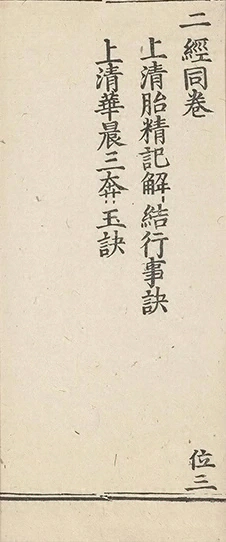 二經同卷
上清胎精記解結行事訣
上清華晨三奔玉訣
位三